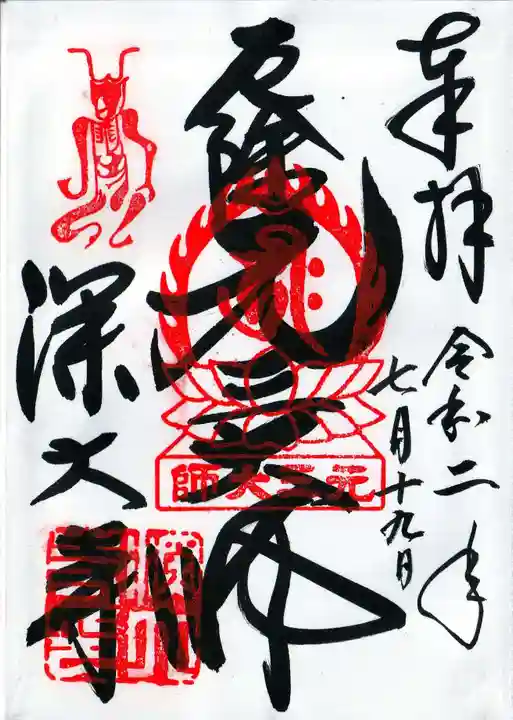 奉拝
令和二年
七月十九日
厄除元三大師
元三大師
深大寺